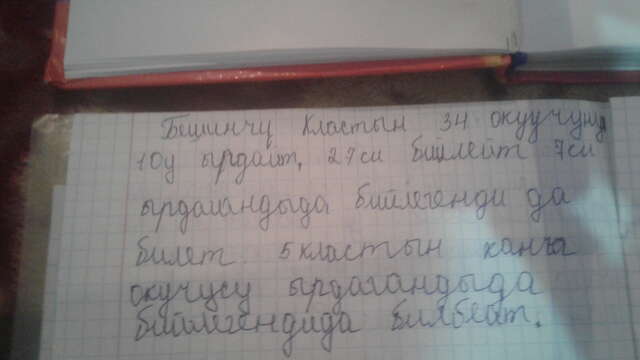 Бешинчү кластын 34 окуучунун
10у ырдайт, 27си бийлейт 7си
ырдагандыда бийлегенди да
билет. 5 кластын канча
окучусу ырдагандыда
бийлегендида билбейт.